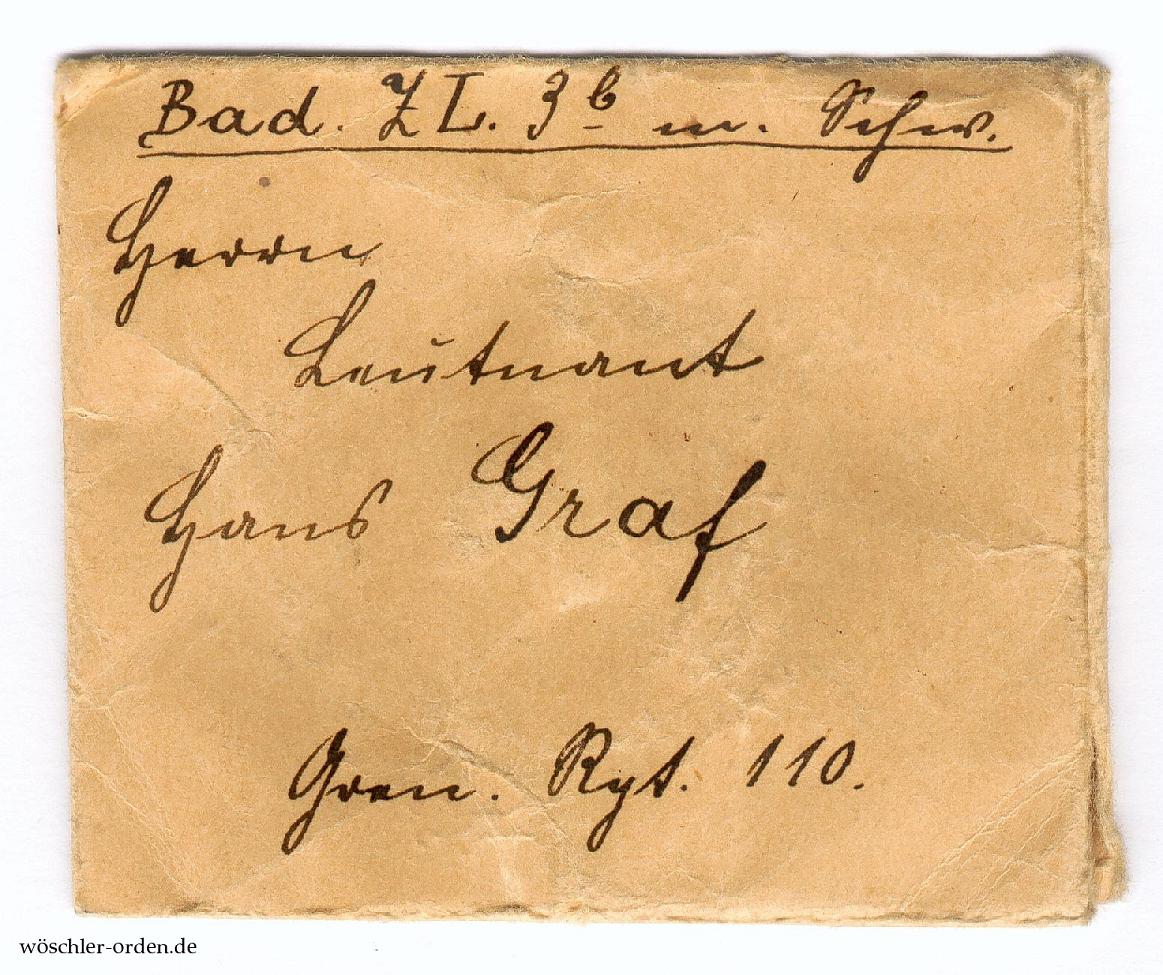 Bad. Z L. 3b m. Schw.
Herrn
Leutnant
Hans Graf
Gren. Rgt. 110.
wöschler-orden.de